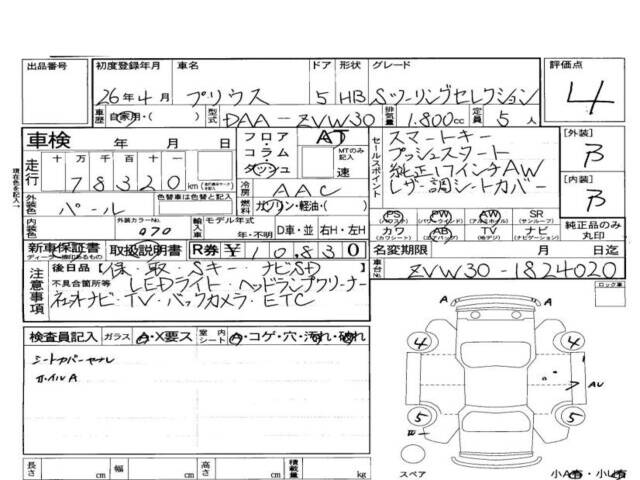 出品番号 初度登録年月 車名 ドア 形状 グレード 評価点
26年4月 プリウス 5 HB Sツーリングセレクション 4
車歴 自家用・( ) 型式 DAA-ZVW30 排気量 1.800cc 定員 5人
車検 年 月 日 フロア・コラム・ダッシュ AT MTのみ記入 速
走行 十万 万 千 百 十 一 78320km
セールスポイント スマートキー
プッシュスタート
純正17インチAW
レザー調シートカバー
[外装] B
[内装] B
冷房 AAC
燃料 ガソリン・軽油・( )
外装色 パール 色替車は色替と記入
内装色 カラーNo. 070 輸入車 モデル年式 年・不明 D車 並 右H・左H
PS (パワステ) PW (パワーウィンド) AW (アルミホイル) SR (サンルーフ)
カワ (カワシート) AB (エアバッグ) TV (地デジ) ナビ (ナビゲーション)
純正品のみ丸印
新車保証書 取扱説明書 R券 ¥10,830 名変期限 月 日迄
注意事項 後日品 (保・取・Sキー・ナビSD) 車台No. ZVW30-1824020
不具合箇所等 LEDライト・ヘッドランプクリーナー
ナビ・TV・バックカメラ・ETC
現在色を記入→
ロック車
検査員記入 ガラス A・X要ス 室内シート A・コゲ・穴・汚れ・破れ
ホイルA
A A
4 4
AU
5 5
スペア
長さ cm 幅 cm 高さ cm 積載量 kg